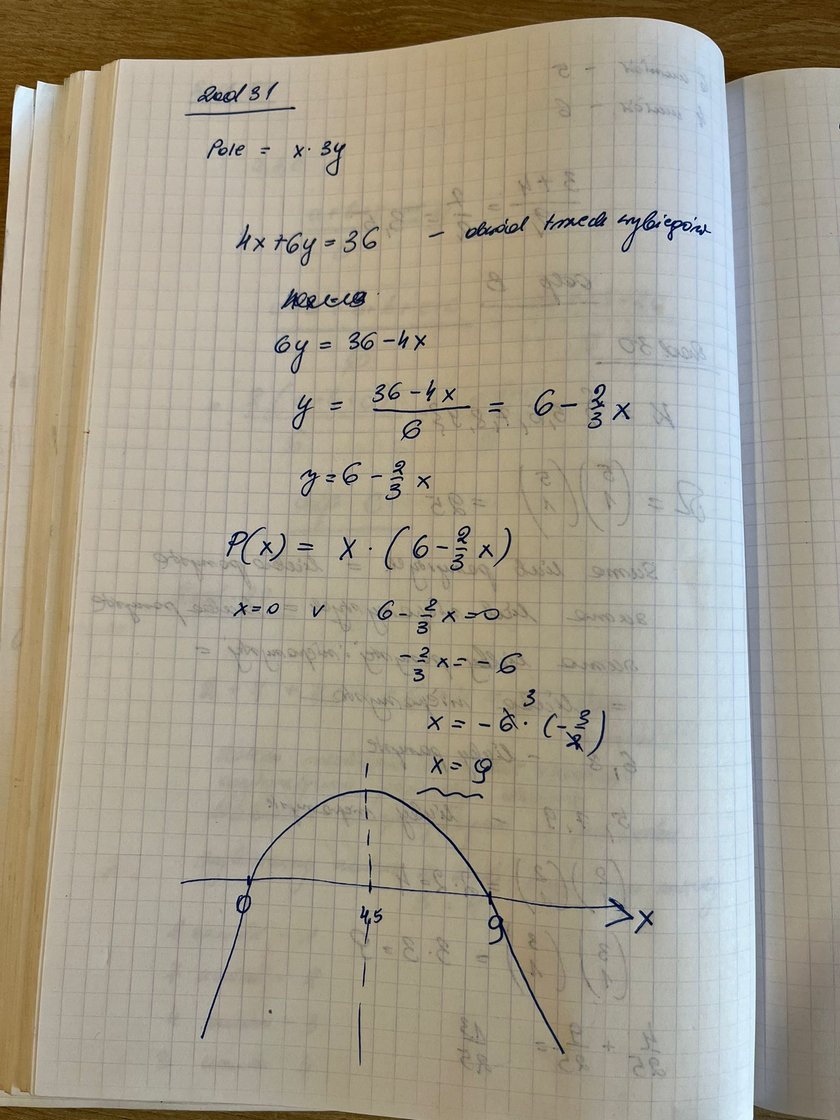 Zad 31
Pole = x · 3y
4x+6y=36 – obwód trzech wybiegów
6y = 36-4x
y = \frac{36-4x}{6} = 6 - \frac{2}{3}x
y = 6 - \frac{2}{3}x
P(x) = x · (6 - \frac{2}{3}x)
x=0 v 6 - \frac{2}{3}x = 0
-\frac{2}{3}x = -6
x = -6 3 · (-\frac{3}{2})
x = 9
0 4,5 9 x